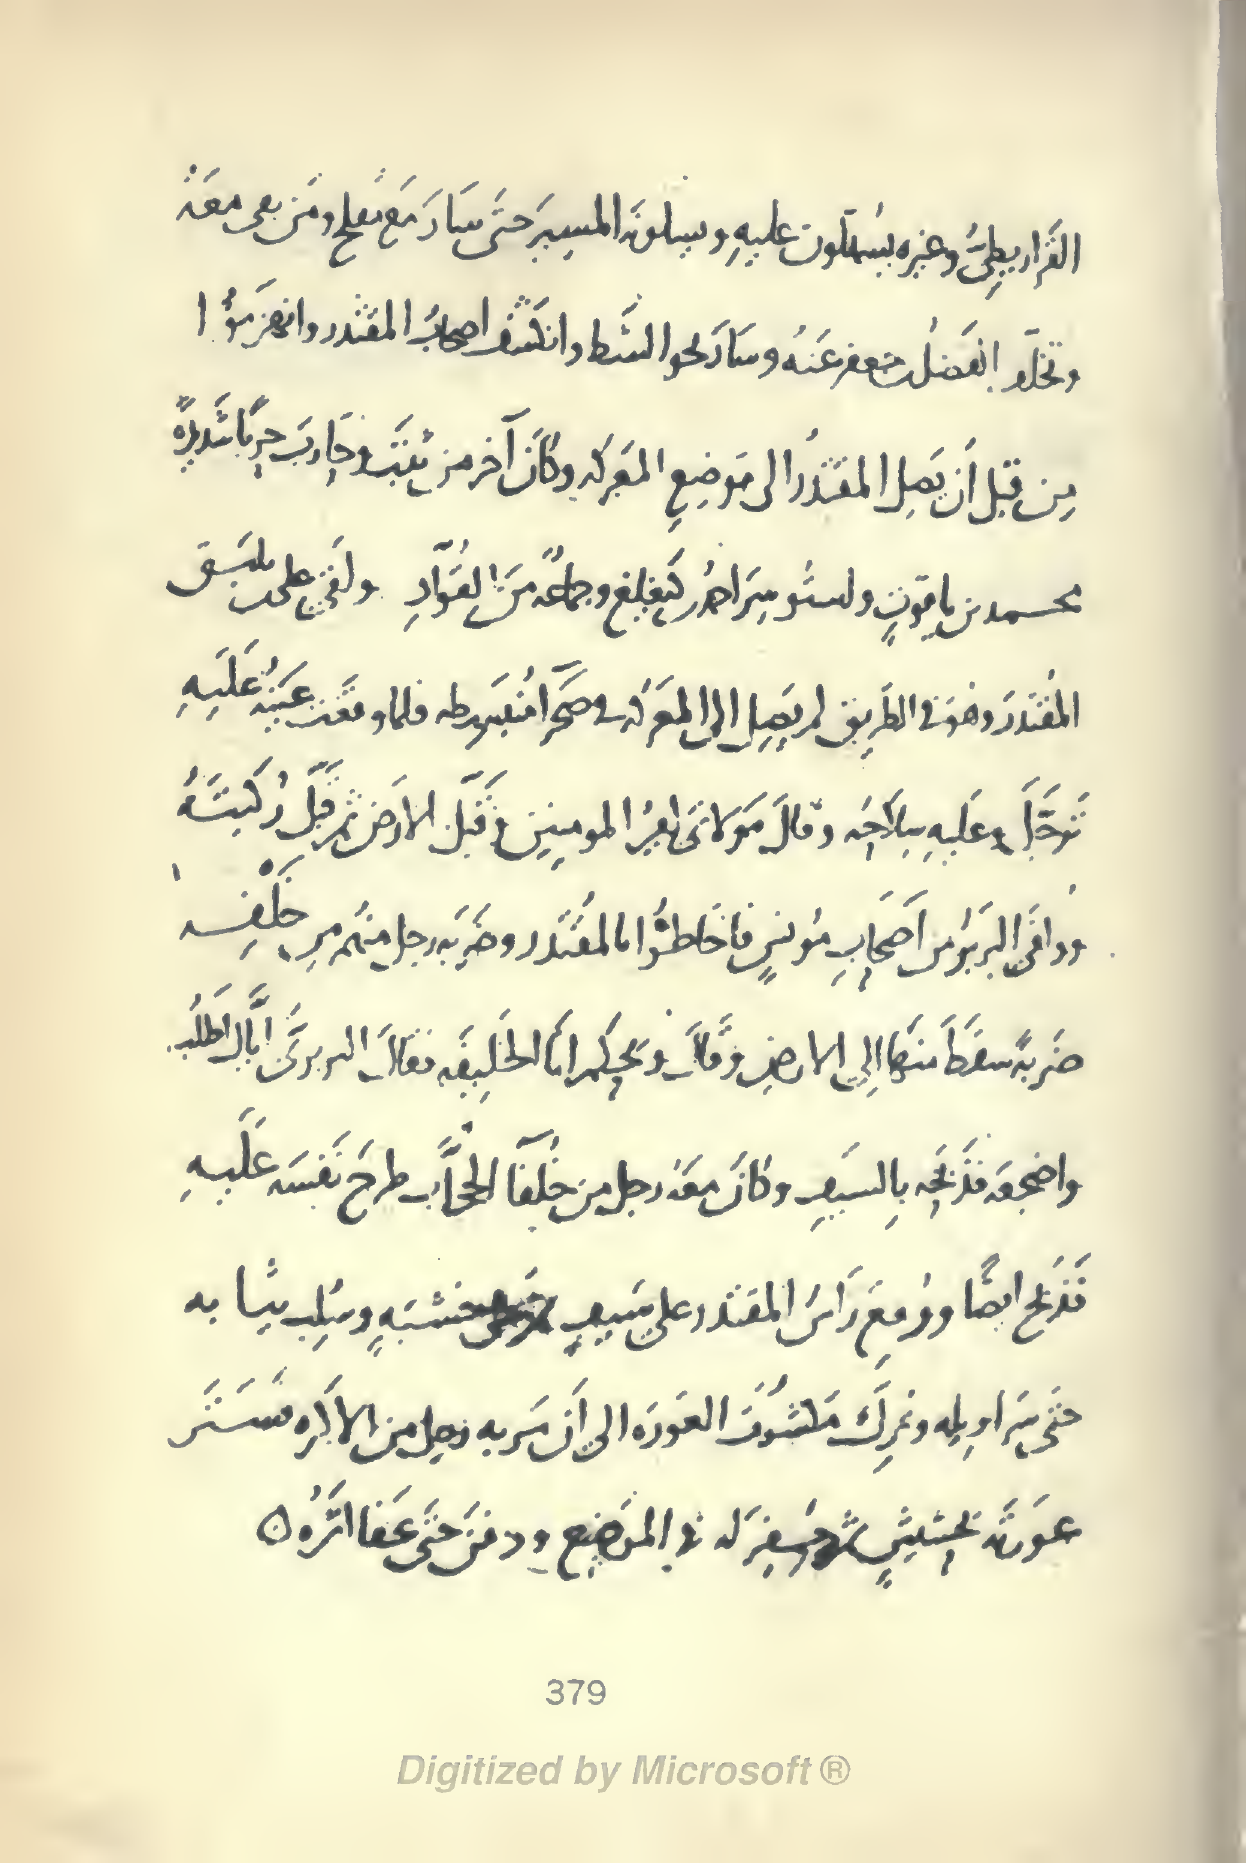 القراريطيّ وغيره يسئلون عليه ويسلونه المسير حتى سار مع مفلح ومن بقى معه
وتخلّف الفضل بن جعفر عنه وسار نحو الشط وانكشف اصحاب المقتدر وانهزموا
من قبل أن يصل المقتدر الى موضع المعركه وكان آخر من ثبت وحارب حربا شديدةً
محمد بن ياقوت واستوسر احمد بن كيغلغ وجماعه من القوّاد ولقى على بن بليق
المقتدر وهو فى الطريق لم يصل الى المعركه فى صحرآ منبسطه فلما وقعت عينه عليه
ترجّل وعليه سلاحه وقال مولاى امير المومنين وقبّل الارض ثم قبّل ركبته
ووافى البربر من اصحاب مونس فاحاطوا بالمقتدر وضربه رجل منهم من خلفه
ضربةً سقط منها الى الارض وقال ويحكم انا الخليفه فقال البربرى ايّاك اطلب
واضجعه فذبحه بالسيف وكان معه رجل من خلفآ الحجّاب طرح نفسه عليه
فذبح ايضًا ورفع راس المقتدر على سيف ثم على خشبه وسُلب ثيابه
حتى سراويله وترك مكشوف العوره الى أن مر به رجل من الاكره فستر
عورته بحشيش ثم حفر له فى الموضع ودفن حتى عفا اثره ه
379
Digitized by Microsoft ®